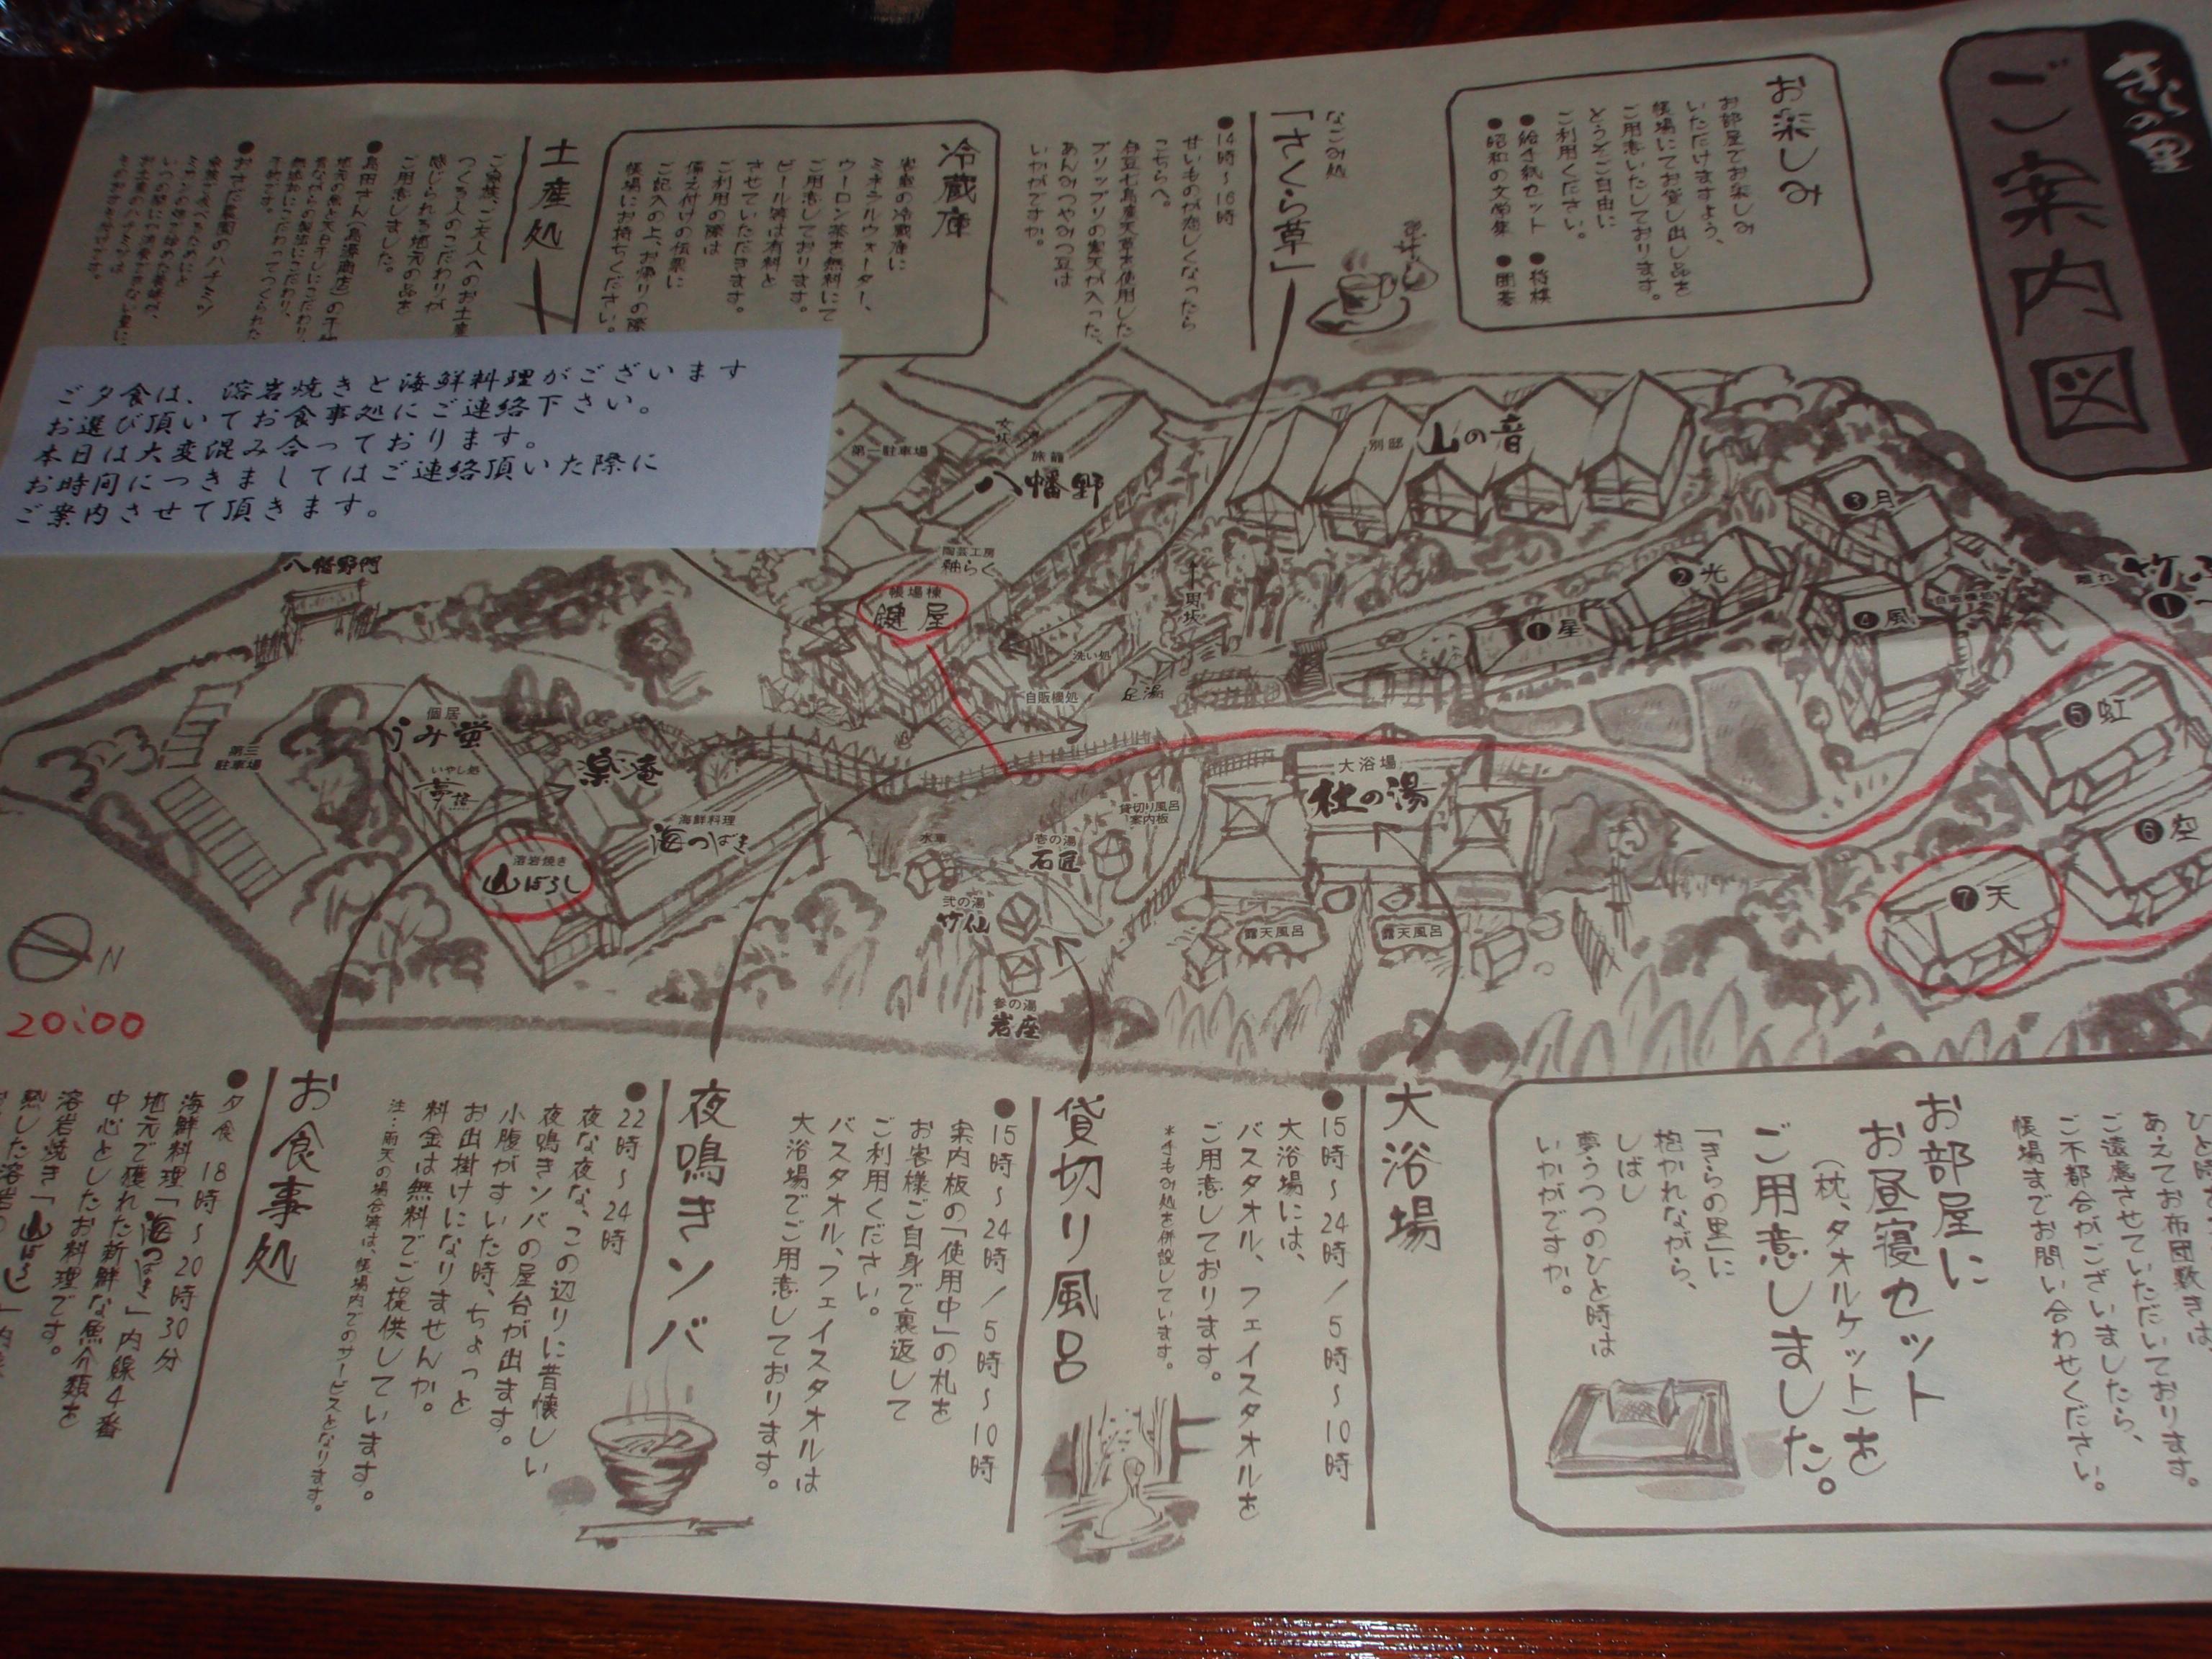 きらの里
ご案内図
お楽しみ
お部屋でお楽しみ
いただけますよう、
帳場にてお貸し出し品を
ご用意いたしております。
どうぞご自由に
ご利用ください。
●絵手紙セット ●将棋
●昭和の文学集 ●囲碁
なごみ処
「さくら草」
●14時〜16時
せいものが恋しくなったら
こちらへ。
伊豆七島産天草を使用した
プリップリの寒天が入った、
あんみつやみつ豆は
いかがですか。
冷蔵庫
客室の冷蔵庫に
ミネラルウォーター、
ウーロン茶を無料にて
ご用意しております。
ビール等は有料と
させていただきます。
ご利用の際は
備え付けの伝票に
ご記入の上、お帰りの際
帳場にお持ちください。
土産処
ご家族、ご友人へのお土産
つくる人のこだわりが
感じられる地元の品を
ご用意しました。
●島田さん(島源商店)の干物
●おさだ農園のハチミツ
ご夕食は、溶岩焼きと海鮮料理がございます
お選び頂いてお食事処にご連絡下さい。
本日は大変混み合っております。
お時間につきましてはご連絡頂いた際に
ご案内させて頂きます。
第一駐車場
女坂
旅籠
八幡野
別邸
山の音
陶芸工房
釉らく
帳場棟
鍵屋
男坂
洗い処
足湯
自販機処
八幡野門
❶星
❷光
❸月
❹風
自販機処
離れ
❶
❺虹
❻空
❼天
第三
駐車場
個居
うみ蛍
いやし処
楽庵
海鮮料理
海つばき
溶岩焼き
山ぼうし
水車
壱の湯
石匠
弐の湯
竹仙
参の湯
岩座
貸切り風呂
案内板
大浴場
杜の湯
露天風呂
露天風呂
N
20:00
ひと時
あえてお布団敷きは、
ご遠慮させていただいております。
ご不都合がございましたら、
帳場までお問い合わせください。
お部屋に
お昼寝セット
(枕、タオルケット)を
ご用意しました。
「きらの里」に
抱かれながら、
しばし
夢うつつのひと時は
いかがですか。
大浴場
●15時〜24時/5時〜10時
大浴場には、
バスタオル、フェイスタオルを
ご用意しております。
*手もみ処を併設しています。
貸切り風呂
●15時〜24時/5時〜10時
案内板の「使用中」の札を
お客様ご自身で裏返して
ご利用ください。
バスタオル、フェイスタオルは
大浴場でご用意しております。
夜鳴きソバ
●22時〜24時
夜な夜な、この辺りに昔懐しい
夜鳴きソバの屋台が出ます。
小腹がすいた時、ちょっと
お出掛けになりませんか。
料金は無料でご提供しています。
注:雨天の場合等は、帳場内でのサービスとなります。
お食事処
●夕食 18時〜20時30分
海鮮料理「海つばき」内線4番
地元で獲れた新鮮な魚介類を
中心としたお料理です。
溶岩焼き「山ぼうし」内線
熱した溶岩の